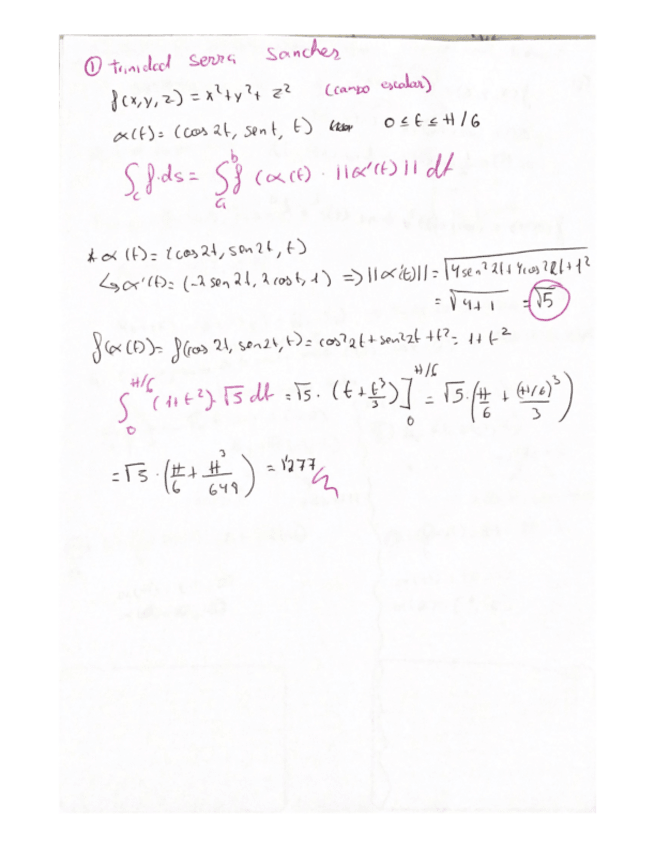 ① trinidad serra Sanchez
f(x,y,z) = x²+y²+ z² (campo escalar)
α(t)= (cos 2t, sen t, t) 0 ≤ t ≤ π/6
∫_c f·ds = ∫_a^b f (α(t) · ||α'(t)|| dt
* α (t)= (cos 2t, sen 2t, t)
↳ α'(t)= (-2 sen 2t, 2 cos t, 1) => ||α'(t)|| = √(4 sen² 2t + 4 cos² 2t + 1²
= √(4+1) = √5
f(α(t))= f(cos 2t, sen 2t, t)= cos² 2t + sen² 2t + t² = 1+ t²
∫_0^{π/6} (1+t²)·√5 dt = √5 · (t + t³/3)]_0^{π/6} = √5·(π/6 + (π/6)³/3)
= √5 · (π/6 + π³/648) = 1'277